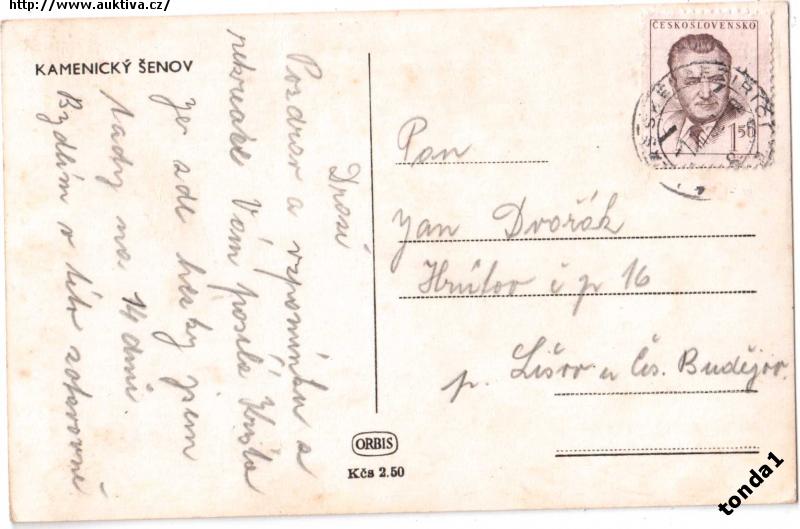 http://www.auktiva.cz/
KAMENICKÝ ŠENOV
ČESKOSLOVENSKO
1.50
Drazí
Pozdrav a vzpomínku z
rekreace Vám posílá
je zde hezky jsem
tady na 14 dnů.
Bydlím v této zotavovně
Pan
Jan Dvořák
Hrůtov č p 16
p. Lišov u Čs. Budějov.
ORBIS
Kčs 2.50
tonda1